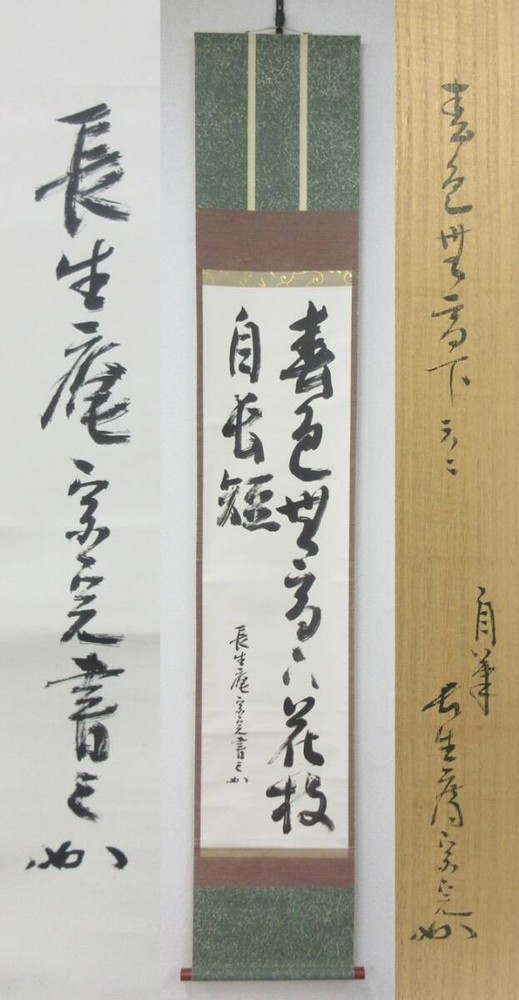 長生庵宗完書之
春色無高下花枝
自長短
長生庵宗完書之
春色無高下云々
自筆
長生庵宗完